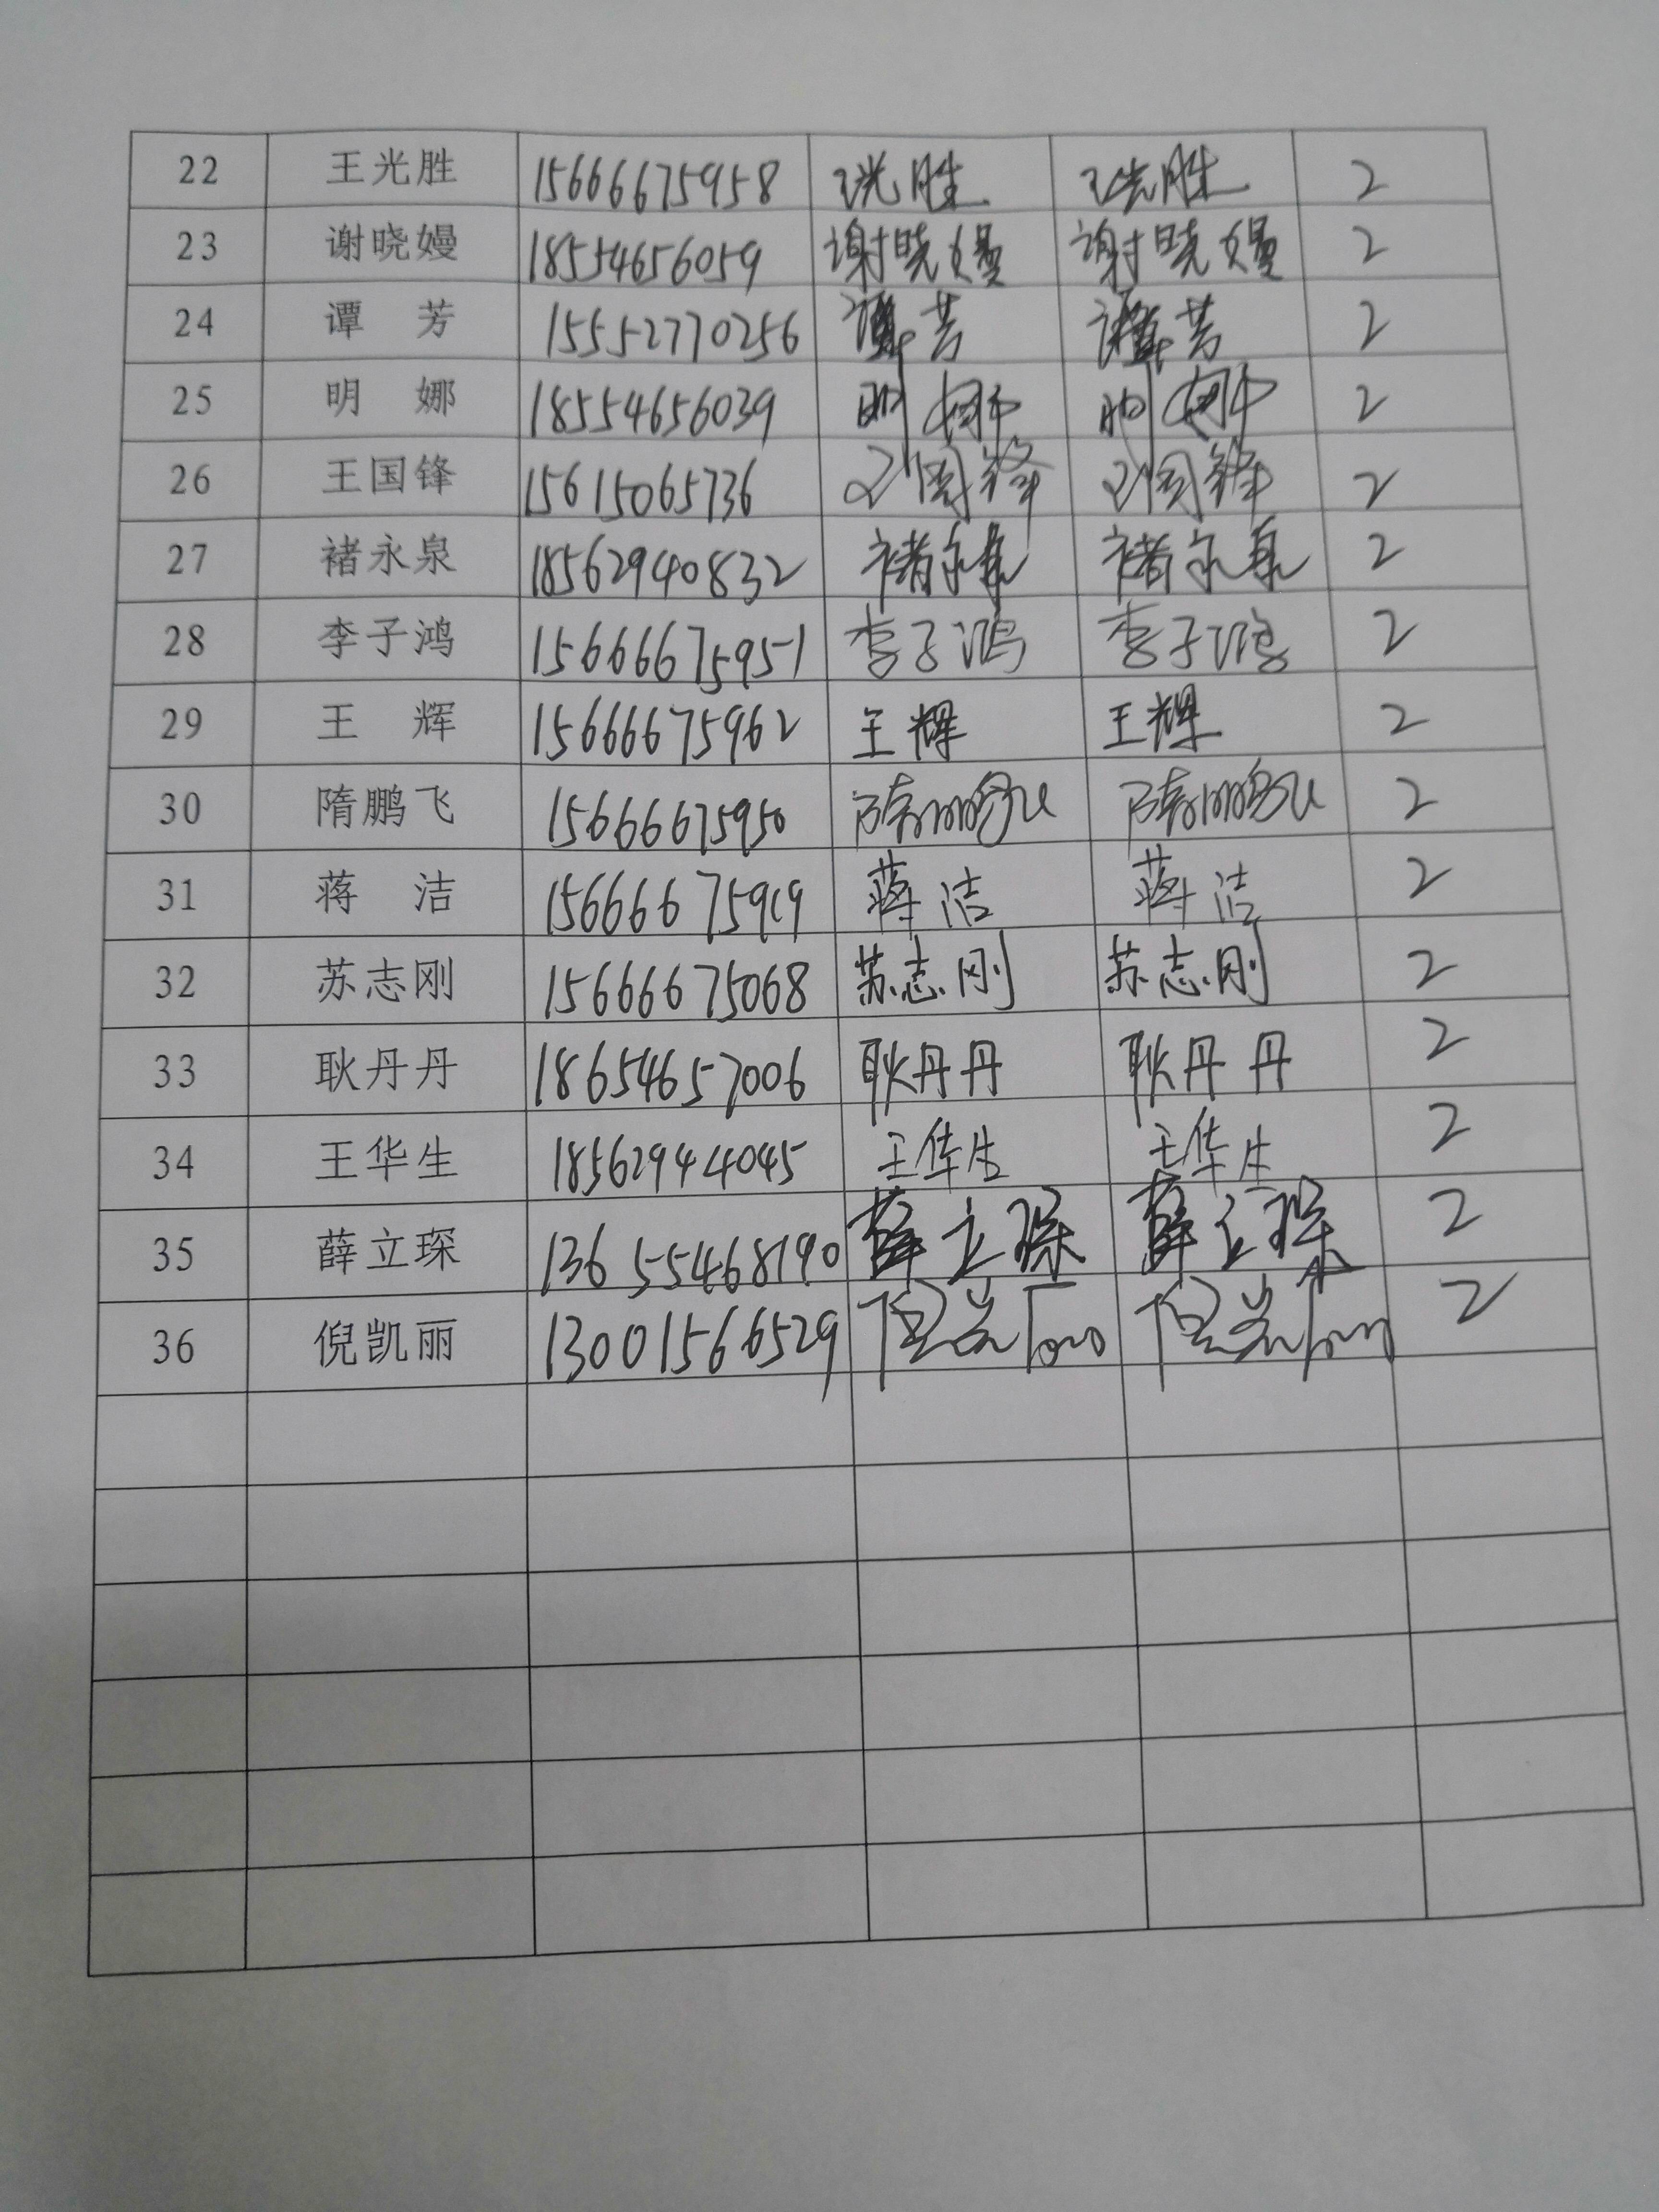 22 王光胜 15666675958 王光胜 王光胜 2
23 谢晓嫚 18554656059 谢晓嫚 谢晓嫚 2
24 谭 芳 15552770256 谭芳 谭芳 2
25 明 娜 18554656039 明娜 明娜 2
26 王国锋 15615065736 王国锋 王国锋 2
27 褚永泉 18562940832 褚永泉 褚永泉 2
28 李子鸿 15666675951 李子鸿 李子鸿 2
29 王 辉 15666675962 王辉 王辉 2
30 隋鹏飞 15666675950 隋鹏飞 隋鹏飞 2
31 蒋 洁 15666675919 蒋洁 蒋洁 2
32 苏志刚 15666675068 苏志刚 苏志刚 2
33 耿丹丹 18654657006 耿丹丹 耿丹丹 2
34 王华生 18562944045 王华生 王华生 2
35 薛立琛 13655468190 薛立琛 薛立琛 2
36 倪凯丽 13001566529 倪凯丽 倪凯丽 2